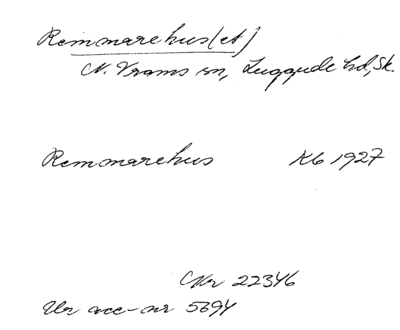 Remmarehus(et)
N. Vrams sn, Luggude hd, Sk.
Remmarehus Kb 1927
CNr 22346
Ur acc-nr 5694